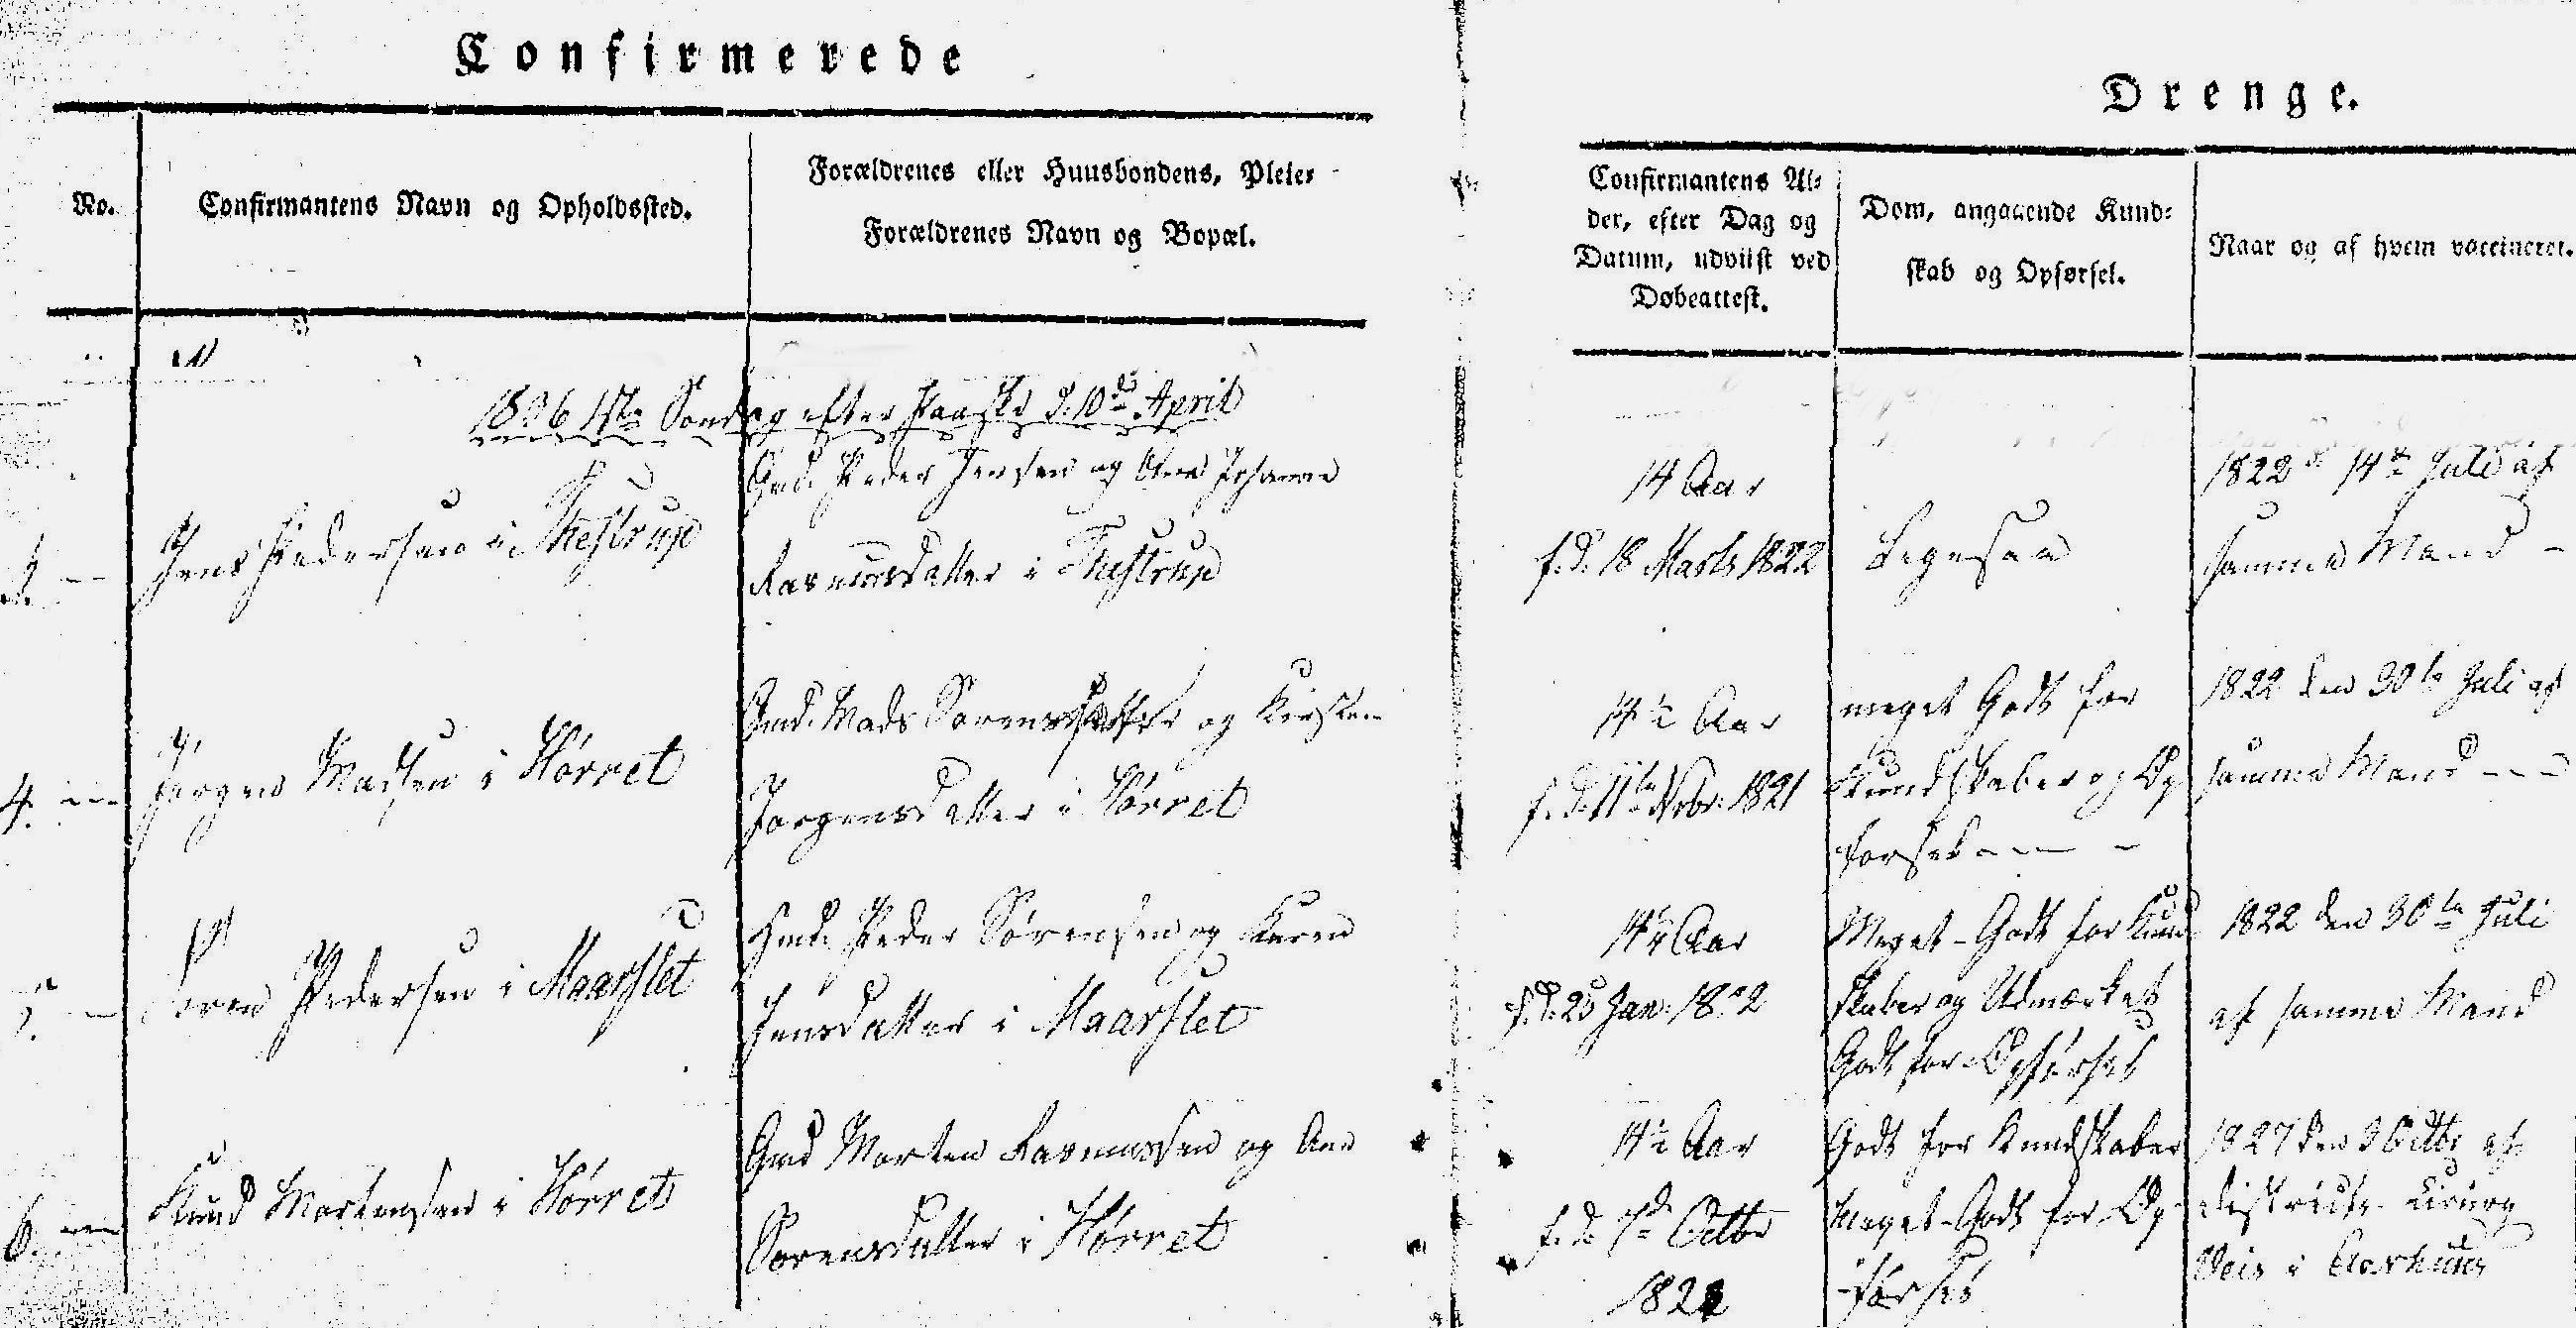 Confirmerede
Drenge.
No.
Confirmantens Navn og Opholdssted.
Forældrenes eller Huusbondens, Pleie-
Forældrenes Navn og Bopæl.
Confirmantens Al-
der, efter Dag og
Datum, udviist ved
Døbeattest.
Dom, angaaende Kund-
skab og Opførsel.
Naar og af hvem vaccineret.
1836 1ste Søndag efter Paaske d. 10de April
3.
Jens Pedersen i Thestrup
Gmd. Peder Jensen og Ane Johanne
Rasmusdatter i Thestrup
14 Aar
f. d. 18 Marts 1822
Ligesaa
1822 d. 14de Juli af
samme Mand
4.
Jørgen Madsen i Hørret
Gmd. Mads Sørensen og Kirsten
Jørgensdatter i Hørret
14½ Aar
f. d. 11te Novbr. 1821
meget Godt for
Kundskaber og Op
førsel
1822 den 30te Juli af
samme Mand
5.
Søren Pedersen i Maarslet
Hmd. Peder Sørensen og Karen
Jensdatter i Maarslet
14¼ Aar
f. d. 25 Jan. 1822
Meget Godt for Kund
skaber og Udmærket
Godt for Opførsel
1822 den 30te Juli
af samme Mand
6.
Knud Mortensen i Hørret
Gmd Morten Rasmussen og Ane
Sørensdatter i Hørret
14½ Aar
f. d. 7de Octbr
1821
Godt for Kundskaber
Meget Godt for Op
førsel
1827 den 3 Octbr af
Districts Chirurg
Weis i Aarhuus